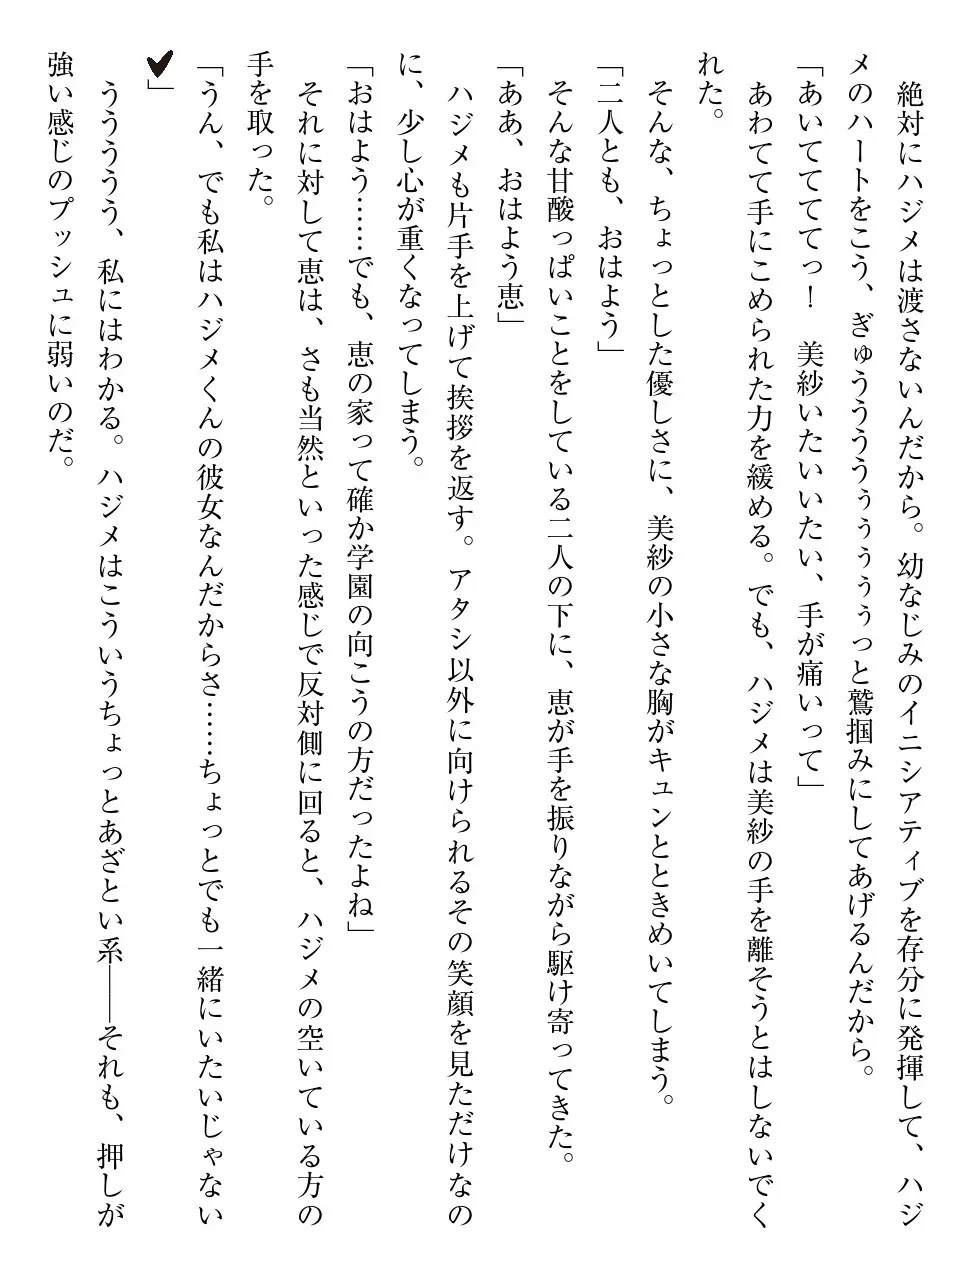 絶対にハジメは渡さないんだから。幼なじみのイニシアティブを存分に発揮して、ハジ
メのハートをこう、ぎゅうううううぅぅぅぅっと鷲掴みにしてあげるんだから。
「あいてててててっ！　美紗いたいいたい、手が痛いって」
　あわてて手にこめられた力を緩める。でも、ハジメは美紗の手を離そうとはしないでく
れた。
　そんな、ちょっとした優しさに、美紗の小さな胸がキュンとときめいてしまう。
「二人とも、おはよう」
　そんな甘酸っぱいことをしている二人の下に、恵が手を振りながら駆け寄ってきた。
「ああ、おはよう恵」
　ハジメも片手を上げて挨拶を返す。アタシ以外に向けられるその笑顔を見ただけなの
に、少し心が重くなってしまう。
「おはよう……でも、恵の家って確か学園の向こうの方だったよね」
　それに対して恵は、さも当然といった感じで反対側に回ると、ハジメの空いている方の
手を取った。
「うん、でも私はハジメくんの彼女なんだからさ……ちょっとでも一緒にいたいじゃない
♥」
　ううううう、私にはわかる。ハジメはこういうちょっとあざとい系――それも、押しが
強い感じのプッシュに弱いのだ。